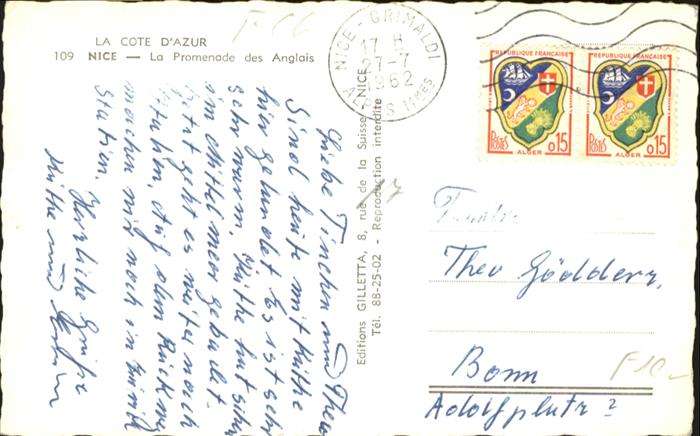 LA COTE D'AZUR
109 NICE — La Promenade des Anglais
F-SC
NICE - GRIMALDI
17 H
27-7
1962
REPUBLIQUE FRANÇAISE
POSTES 0,15
ALGER
REPUBLIQUE FRANÇAISE
POSTES 0,15
ALGER
Editions GILLETTA, 8, rue de la Suisse, NICE
Tél. 88-25-02 - Reproduction interdite
Liebe Tinchen und Theo
Sind heute mit Käthe
hier gelandet. Es ist sehr
sehr warm. Käthe hat schon
im Mittelmeer gebadet.
Jetzt geht es weiter nach
Italien. Auf dem Rückweg
machen wir noch in Zürich
Station.
Herzliche Grüße
Käthe und
Familie
Theo Gödderz
Bonn
Adolfplatz 2